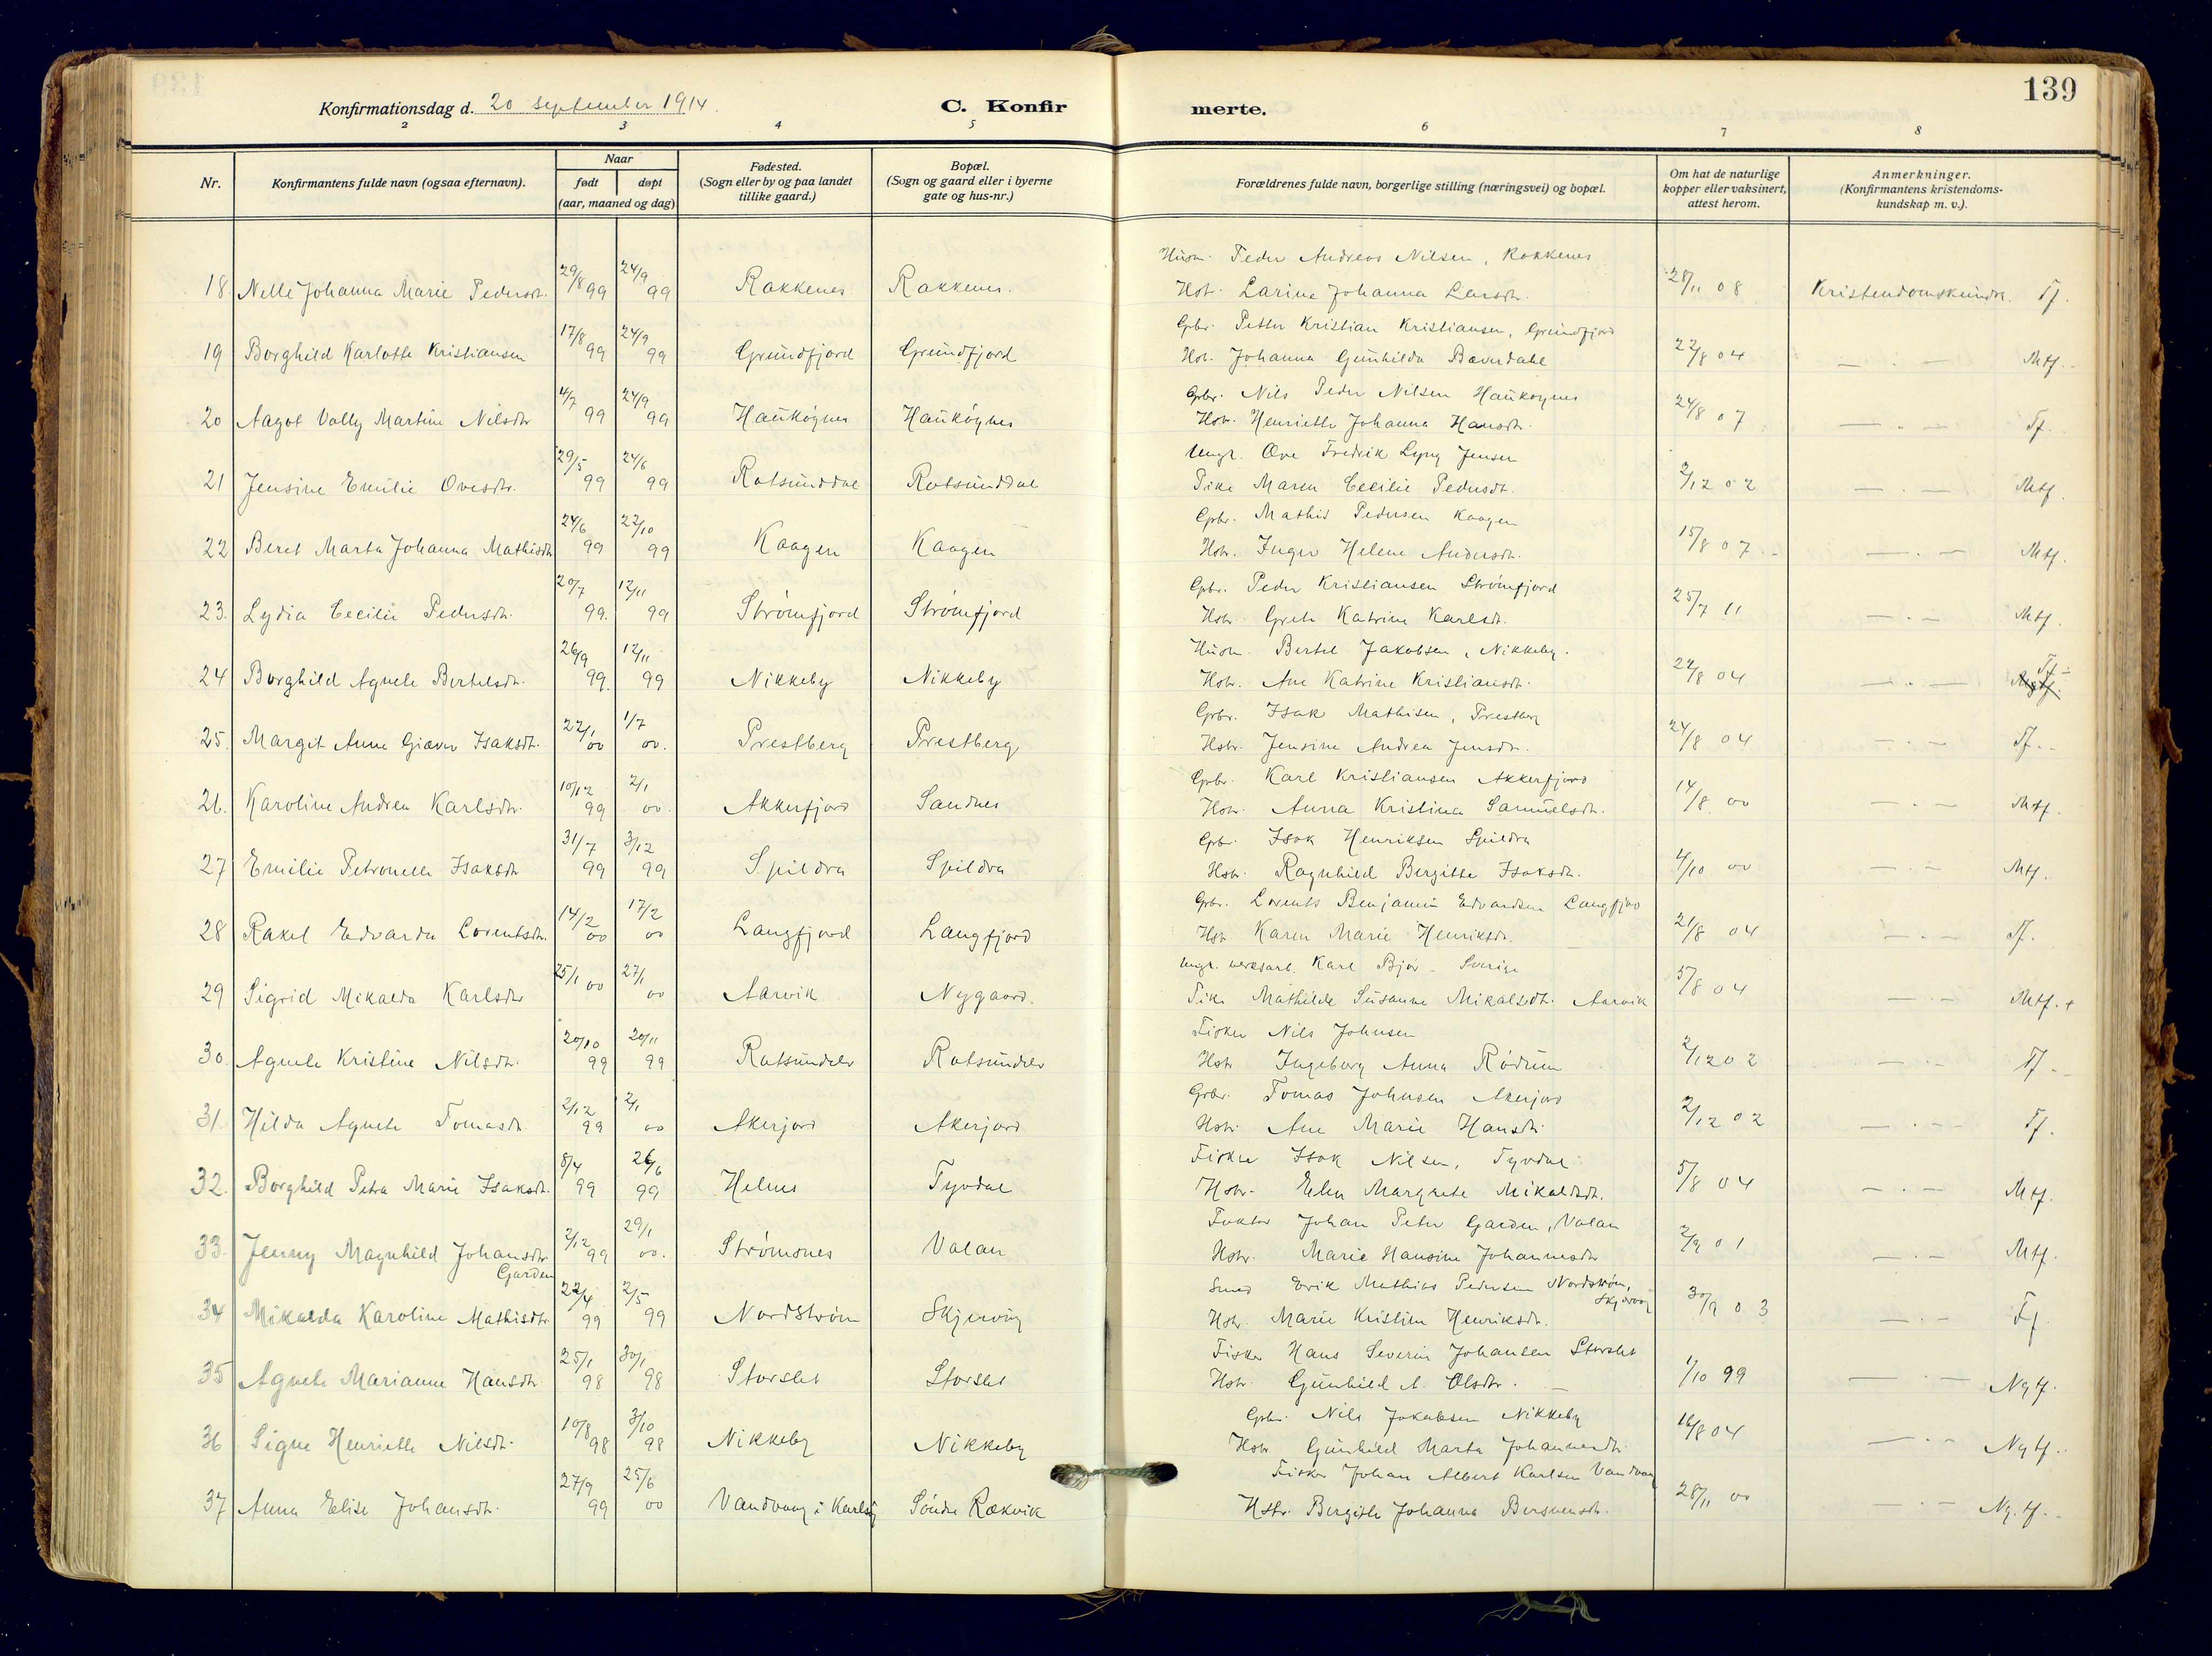 139
Konfirmationsdag d. 20 september 1914.
C. Konfirmerte.
2 3 4 5 6 7 8
Nr.
Konfirmantens fulde navn (ogsaa efternavn).
Naar
født døpt
(aar, maaned og dag)
Fødested.
(Sogn eller by og paa landet
tillike gaard.)
Bopæl.
(Sogn og gaard eller i byerne
gate og hus-nr.)
Forældrenes fulde navn, borgerlige stilling (næringsvei) og bopæl.
Om hat de naturlige
kopper eller vaksinert,
attest herom.
Anmerkninger.
(Konfirmantens kristendoms-
kundskap m. v.).
Husm. Peder Andreas Nilsen, Rakkenes
18. Nelle Johanna Marie Pedersdt. 29/8 99 24/9 99 Rakkenes Rakkenes. Hst. Larine Johanna Larsdt. 28/11 08 Kristendomskundsk. Tf.
Gbr. Petter Kristian Kristiansen, Grundfjord
19 Borghild Karlotte Kristiansen 17/8 99 24/9 99 Grundfjord Grundfjord Hst. Johanna Gunhilda Bæverdahl 22/8 04 — . — Mtf.
Gbr. Nils Peder Nilsen Haukøynes
20 Aagot Vally Martine Nilsdtr 4/7 99 24/9 99 Haukøynes Haukøynes Hst. Henriette Johanna Hansdt. 24/8 07 — . — Tf.
Ungk. Ove Fredrik Lyng Jensen
21 Jensine Emilie Ovesdtr. 29/5 99 24/6 99 Rotsunddal Rotsunddal Pike Maren Cecilie Pedersdt. 2/12 02 — . — Mtf.
Gbr. Mathis Pedersen Kaagen
22 Beret Marta Johanna Mathisdt 24/6 99 22/10 99 Kaagen Kaagen Hst. Inger Helene Andersdt. 15/8 07 — . — Mtf.
Gbr. Peder Kristiansen Strømfjord
23. Lydia Cecilie Pedersdt. 20/7 99. 12/11 99 Strømfjord Strømfjord Hst. Grete Katrine Karlsdt. 25/7 11 — . — Mtf.
Husm. Bertel Jakobsen, Nikkeby.
24 Borghild Agnete Bertelsdt. 26/9 99. 12/11 99 Nikkeby Nikkeby Hst. Ane Katrine Kristiansdt. 22/8 04 — . — Tf.
Gbr. Isak Mathisen, Prestberg
25. Margit Anne Giæver Isaksdt. 22/1 00 1/7 00. Prestberg Prestberg Hstr. Jensine Andrea Jensdt. 24/8 04 — . — Tf.
Gbr. Karl Kristiansen Akkerfjord
26. Karoline Andrea Karlsdt. 10/12 99 2/1 00. Akkerfjord Sandnes Hst. Anna Kristina Samuelsdt. 14/8 00 — . — Mtf.
Gbr. Isak Henriksen Spildra
27 Emilie Petronelle Isaksdt 31/7 99 3/12 99 Spildra Spildra Hst. Ragnhild Bergitte Isaksdt. 4/10 00 — . — Mtf.
Gbr. Lorents Benjamin Edvardsen Langfjord
28 Rakel Edvarda Lorentsdt. 14/2 00 17/2 00 Langfjord Langfjord Hst. Karen Marie Henriksdt. 21/8 04 — . — Tf.
Ungk. verksarb. Karl Bjør - Sverige
29 Sigrid Mikalda Karlsdtr 25/1 00 27/1 00 Aarvik Nygaard. Pike Mathilde Susanne Mikalsdt. Aarvik 5/8 04 — . — Mtf.
Fisker Nils Johnsen
30. Agnete Kristine Nilsdt. 20/10 99 20/11 99 Rotsundelv Rotsundelv Hst. Ingeborg Anna Rødum 2/12 02 — . — Tf.
Gbr. Tomas Johnsen Akerjord
31. Hilda Agnete Tomasdt 2/12 99 2/1 00 Akerjord Akerjord Hst. Ane Marie Hansdt. 2/12 02 — . — Tf.
Fisker Isak Nilsen, Tyvdal
32. Borghild Petra Marie Isaksdt. 8/4 99 26/6 99 Helnes Tyvdal Hstr. Elen Margrete Mikalsdt. 5/8 04 — . — Mtf.
Faktor Johan Peter Garden, Valan
33. Jenny Magnhild Johansdtr Garden 2/12 99 29/1 00. Strømsnes Valan Hstr. Marie Hansine Johannesdtr 2/9 01 — . — Mtf.
Smed Erik Mathias Pedersen Nordstrøm, Skjervøy
34 Mikalda Karoline Mathisdtr 22/4 99 2/5 99 Nordstrøm Skjervøy Hstr. Marie Kristine Henriksdt. 30/9 03 — . — Tf.
Fisker Hans Severin Johansen Storslet
35 Agnete Marianne Hansdt. 25/1 98 30/1 98 Storslet Storslet Hst. Gunhild A. Olsdtr. 1/10 99 — . — Ngtf.
Gbr. Nils Jakobsen Nikkeby
36 Signe Henriette Nilsdt. 10/8 98 3/10 98 Nikkeby Nikkeby Hst. Gunhild Marta Johannesdt. 16/8 04 — . — Ngtf.
Fisker Johan Albert Karlsen Vandvaag
37 Anna Elise Johansdt. 27/9 99 25/6 00 Vandvaag i Karlsøy Søndre Rækvik Hstr. Bergitte Johanna Bersvensdt. 28/11 00 — . — Ng. tf.